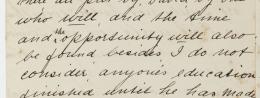 who will and the time
and the opportunity will also
be found besides I do not
consider anyone's education
finished until he has made